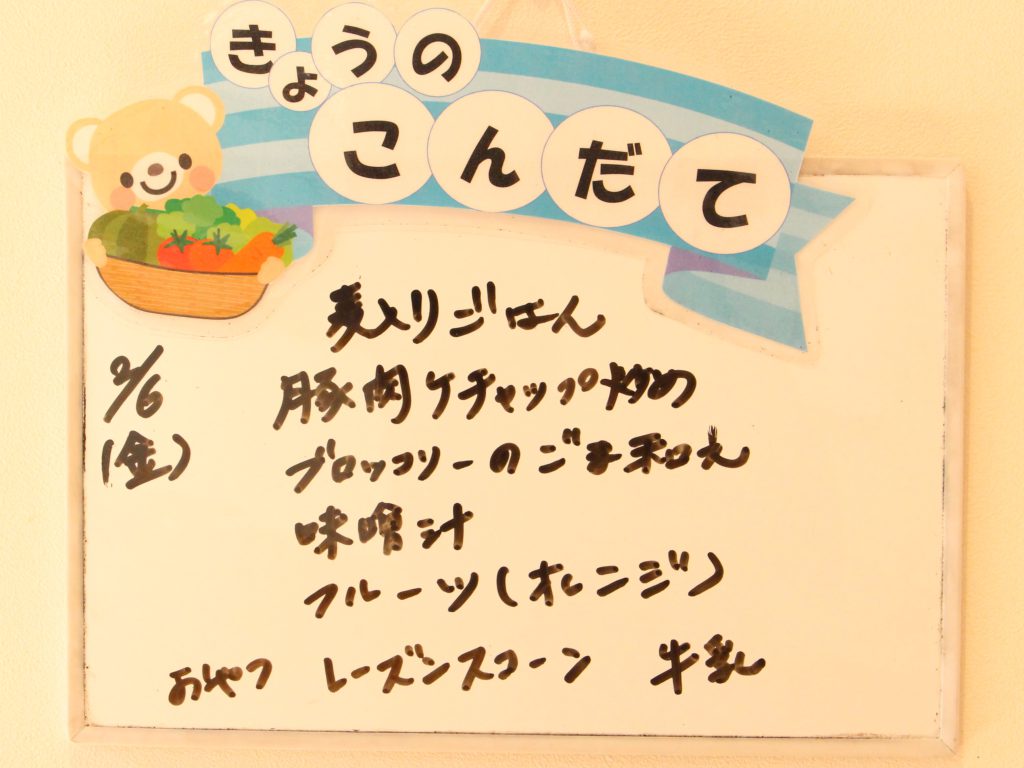 きょうの
こんだて
麦入りごはん
2/6
(金)
豚肉ケチャップ炒め
ブロッコリーのごま和え
味噌汁
フルーツ(オレンジ)
おやつ レーズンスコーン 牛乳